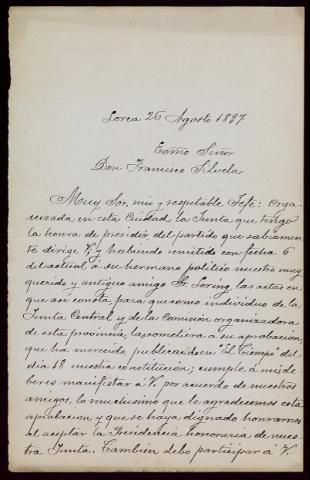 Lorca 26 Agosto 1897
Excmo Señor
Don Francisco Silvela
Muy Sor. mio y respetable Jefe: Orga-
nizada en esta Ciudad la Junta que tengo
la honra de presidir, del partido que sabiamen-
te dirige V, y habiendo remitido con fecha 6
del actual á su hermano politico nuestro muy
querido y antiguo amigo Sr. Loring, las actas en
que así consta, para que como individuo de la
Junta Central y de la Comisión organizadora
de esta provincia, las sometiera á su aprobacion,
que ha merecido, publicadas en "El Tiempo" del
dia 18 nuestra constitucion; cumple á mis de-
beres manifestar á V, por acuerdo de nuestros
amigos, lo muchisimo que le agradecemos esta
aprobacion y que se haya dignado honrarnos
al aceptar la Presidencia honoraria de nues-
tra Junta. Tambien debo participar á V.